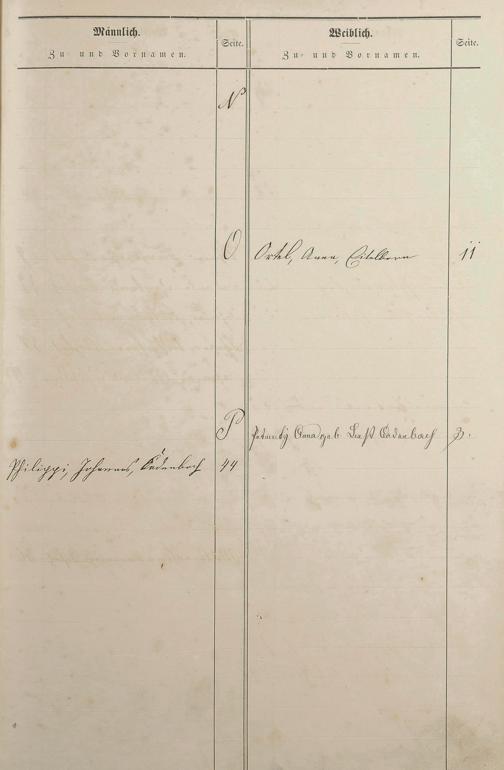 Männlich.
Zu- und Vornamen.
Seite.
Weiblich.
Zu- und Vornamen.
Seite.
N
O
Ortel, Anna, Eitelborn
11
P
Anna geb. Cadenbach
Philippi, Johannes, Kadenbach
44